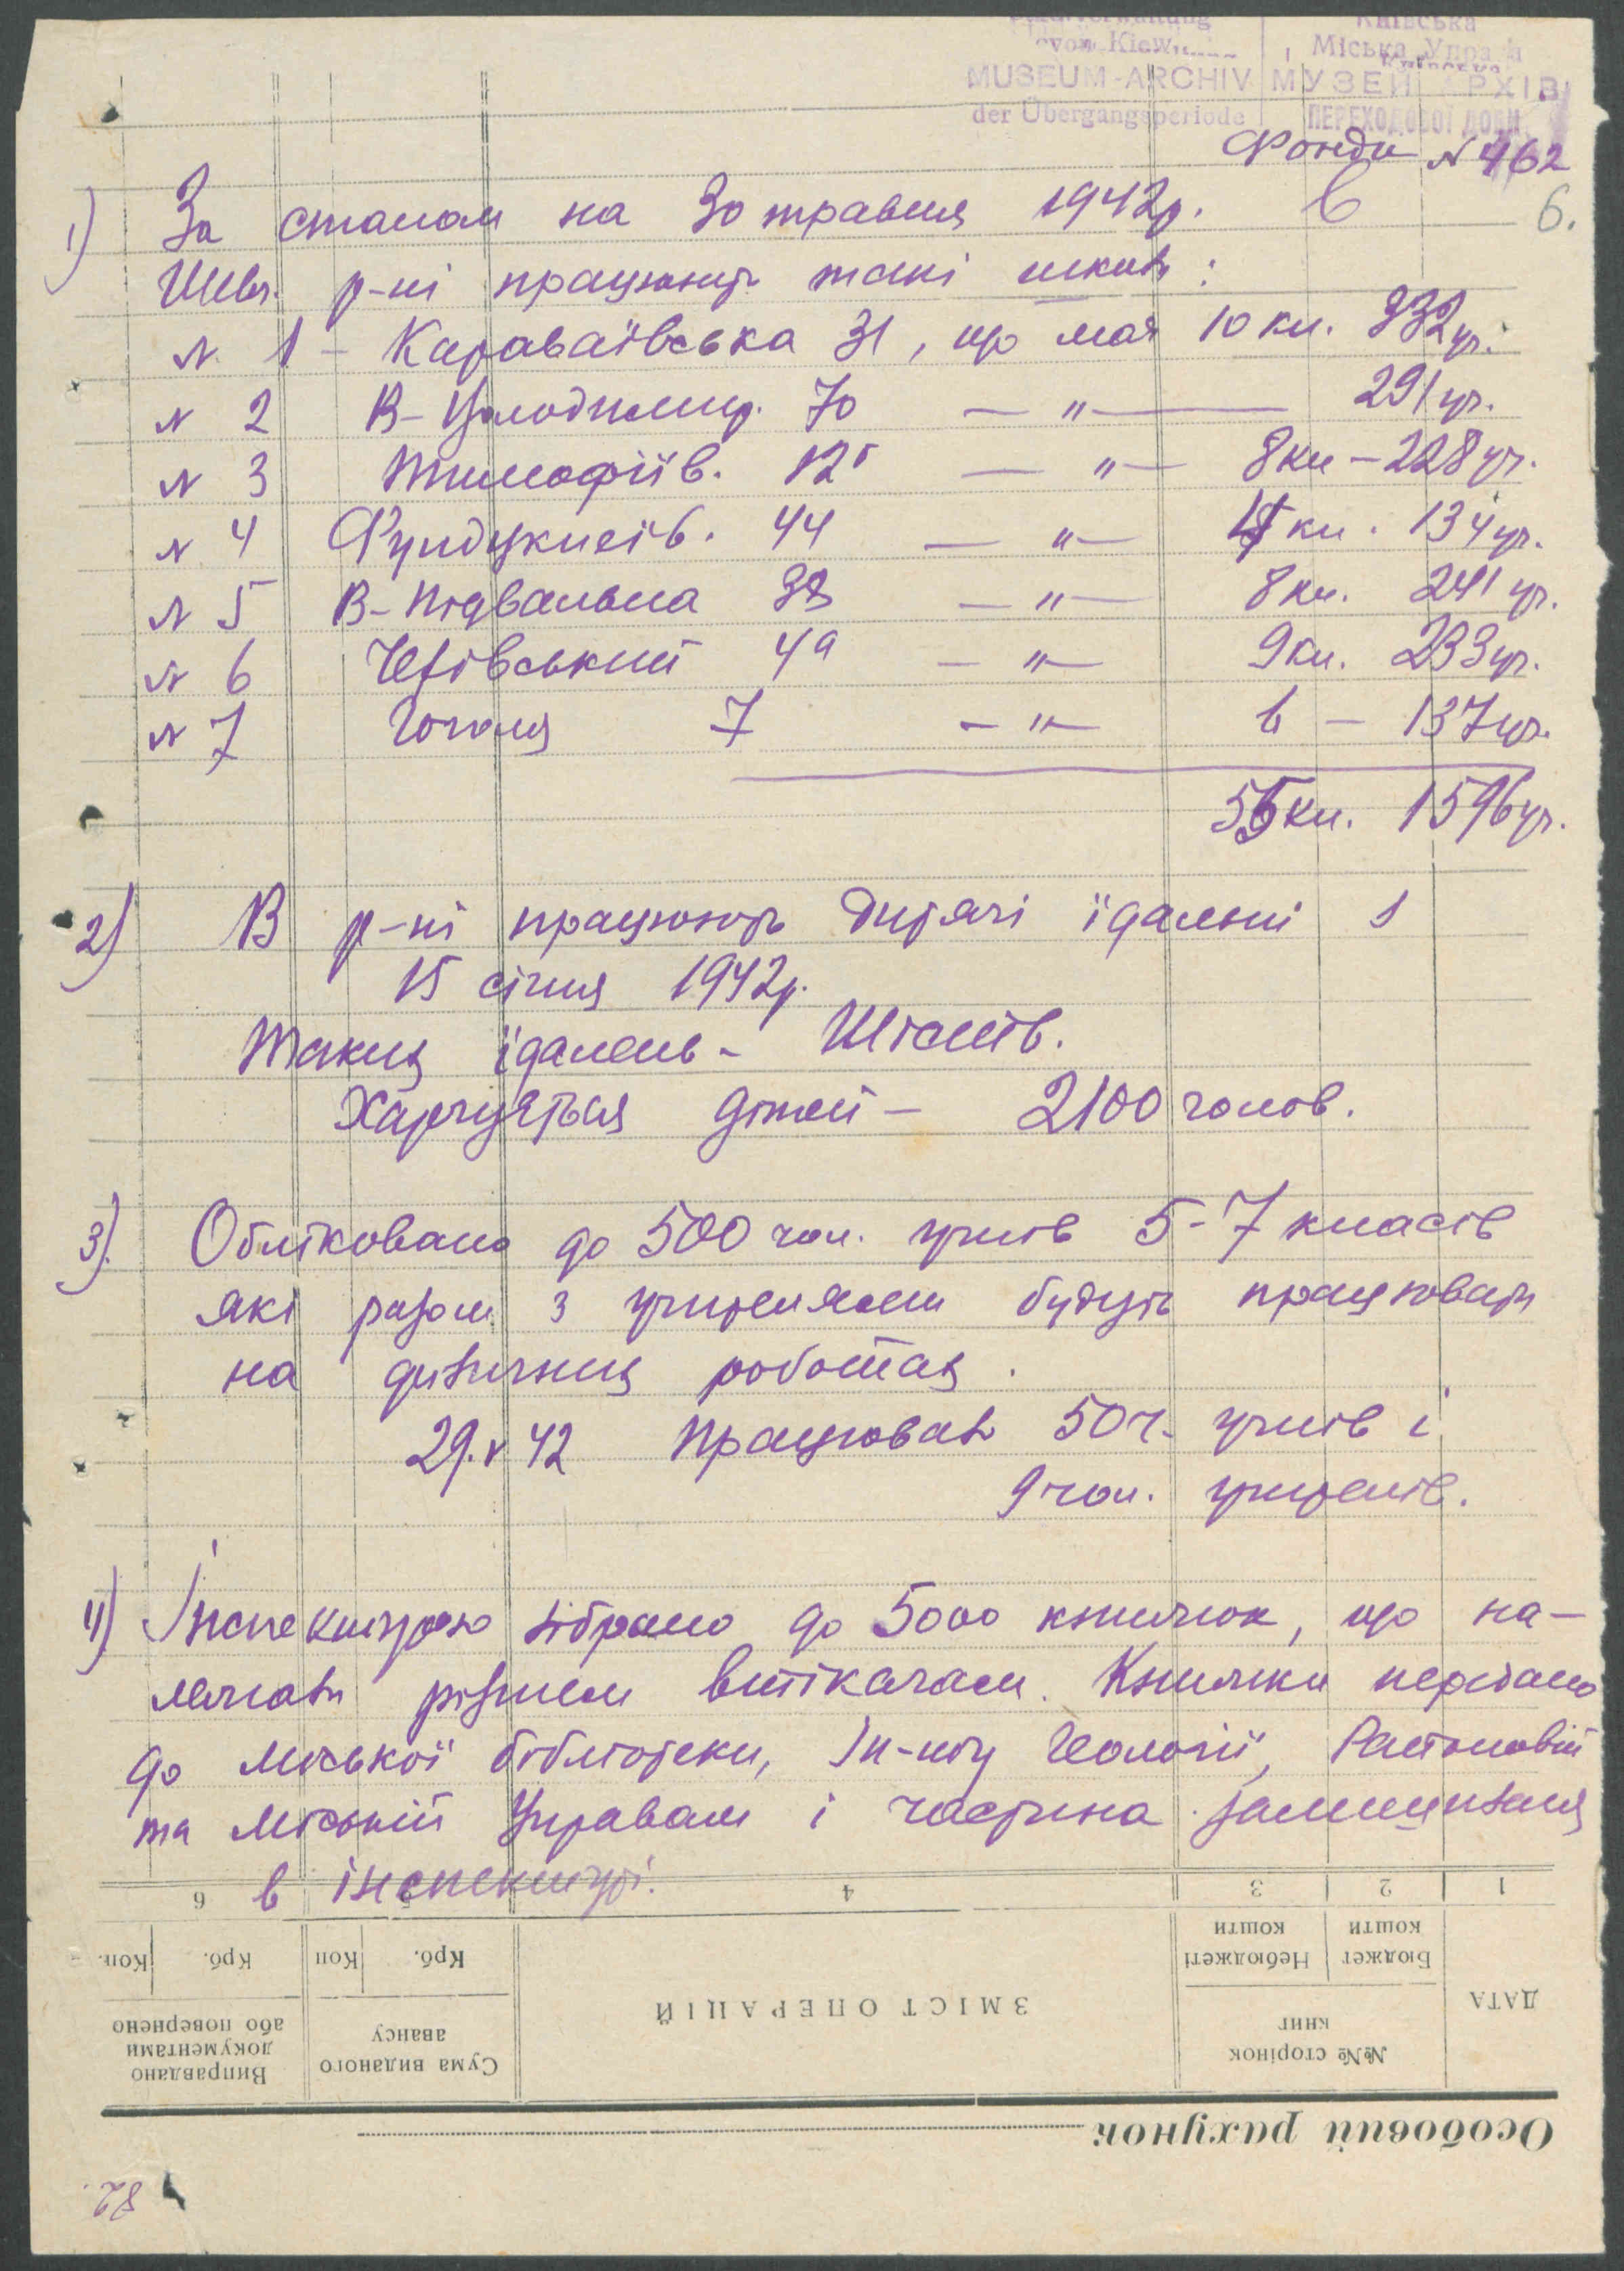 Stadtverwaltung
von Kiew
MUSEUM-ARCHIV
der Übergangsperiode
Київська
Міська Управа
МУЗЕЙ АРХІВ
ПЕРЕХОДОВОЇ ДОБИ
Фонди № 462
6.
1) За станом на 30 травня 1942р. в
Шевч. р-ні працюють такі школи:
№ 1 - Караваївська 31, що має 10 кл. 332 уч.
№ 2 В-Володимир. 70 — " — 291 уч.
№ 3 Тимофіїв. 12 — " — 8 кл - 228 уч.
№ 4 Фундуклеїв. 44 — " — кл. 134 уч.
№ 5 В-Підвальна 38 — " — 8 кл. 241 уч.
№ 6 Чехівський 4а — " — 9 кл. 233 уч.
№ 7 Гоголя 7 — " — 6 — 137 уч.
55 кл. 1596 уч.
2) В р-ні працюють дитячі їдальні з
15 січня 1942р.
Таких їдалень - Шість.
Харчується дітей - 2100 чолов.
3). Обліковано до 500 чол. учнів 5-7 класів
які разом з учителями будуть працювати
на фізичних роботах.
29.V 42 працювало 50 ч. учнів і
9 чол. учителів.
4) Інспектурою зібрано до 5000 книжок, що на-
лежали різним втікачам. Книжки передано
до міської бібліотеки, Ін-ту Геології, Районовій
та міській Управам і частина залишилася
в інспектурі.
1 2 3 4 5 6
ДАТА
№№ сторінок
книг
Бюджет
кошти
Небюджеті
кошти
ЗМІСТ ОПЕРАЦІЙ
Сума виданого
авансу
Крб. Коп
Виправдано
документами
або повернено
Крб. Коп.
Особовий рахунок
82.